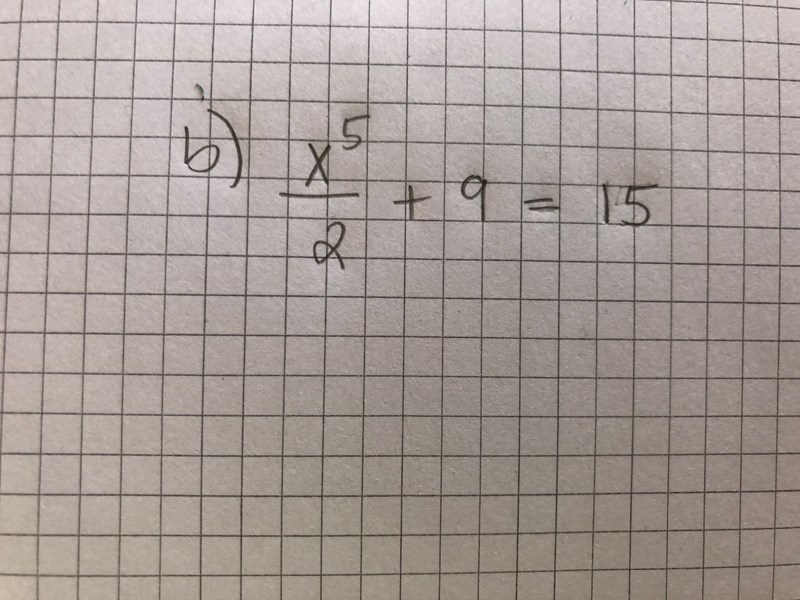 b) x⁵/2 + 9 = 15